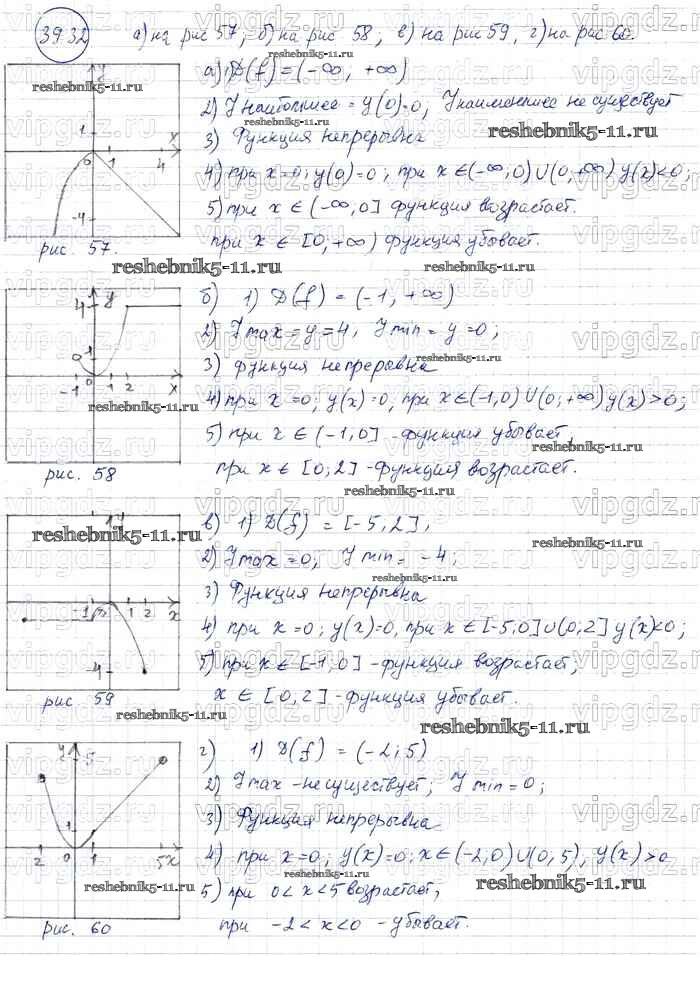 3932
а) на рис 57, б) на рис 58, в) на рис 59, г) на рис 60.
а) D(f) = (-∞, +∞)
2) Yнаибольшее = y(0)=0, Yнаименьшее не существует
3) Функция непрерывна
4) при x=0; y(0)=0, при x∈(-∞,0)∪(0,+∞) y(x)<0;
5) при x∈(-∞,0] функция возрастает.
при x∈[0,+∞) функция убывает.
y
1
x
0
1
4
-4
рис. 57.
б) 1) D(f) = (-1, +∞)
2) Ymax = y = 4, Ymin = y = 0;
3) функция непрерывна
4) при x=0; y(x)=0, при x∈(-1,0)∪(0;+∞) y(x)>0;
5) при x∈(-1,0] - функция убывает,
при x∈[0;2] - функция возрастает.
4
y
1
-1
0
1
2
x
рис. 58
в) 1) D(f) = [-5,2],
2) Ymax = 0; Ymin = -4;
3) Функция непрерывна
4) при x=0; y(x)=0, при x∈[-5,0]∪(0;2] y(x)<0;
5) при x∈[-1,0] - функция возрастает,
x∈[0,2] - функция убывает.
-1
1
2
x
-4
рис 59
г) 1) D(f) = (-2;5)
2) Ymax - не существует; Ymin = 0;
3) Функция непрерывна
4) при x=0; y(x)=0; x∈(-2,0)∪(0,5), y(x)>0
5) при 0<x<5 возрастает,
при -2<x<0 - убывает.
y
5
1
2
0
1
5x
рис. 60
reshebnik5-11.ru
vipgdz.ru